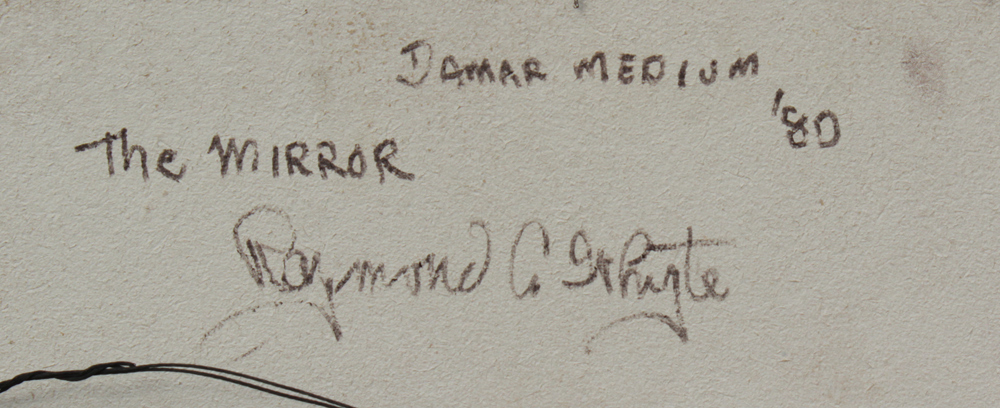 DAMAR MEDIUM
'80
The MIRROR
Raymond A Whyte